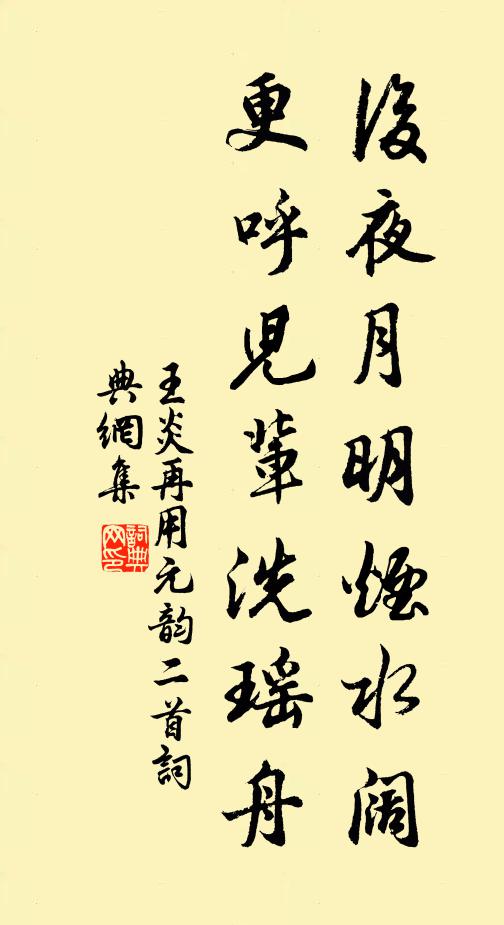 後夜月明煙水闊
更呼兒輩洗瑤舟
王炎再用元韵二首詞
典網集
詞典網印